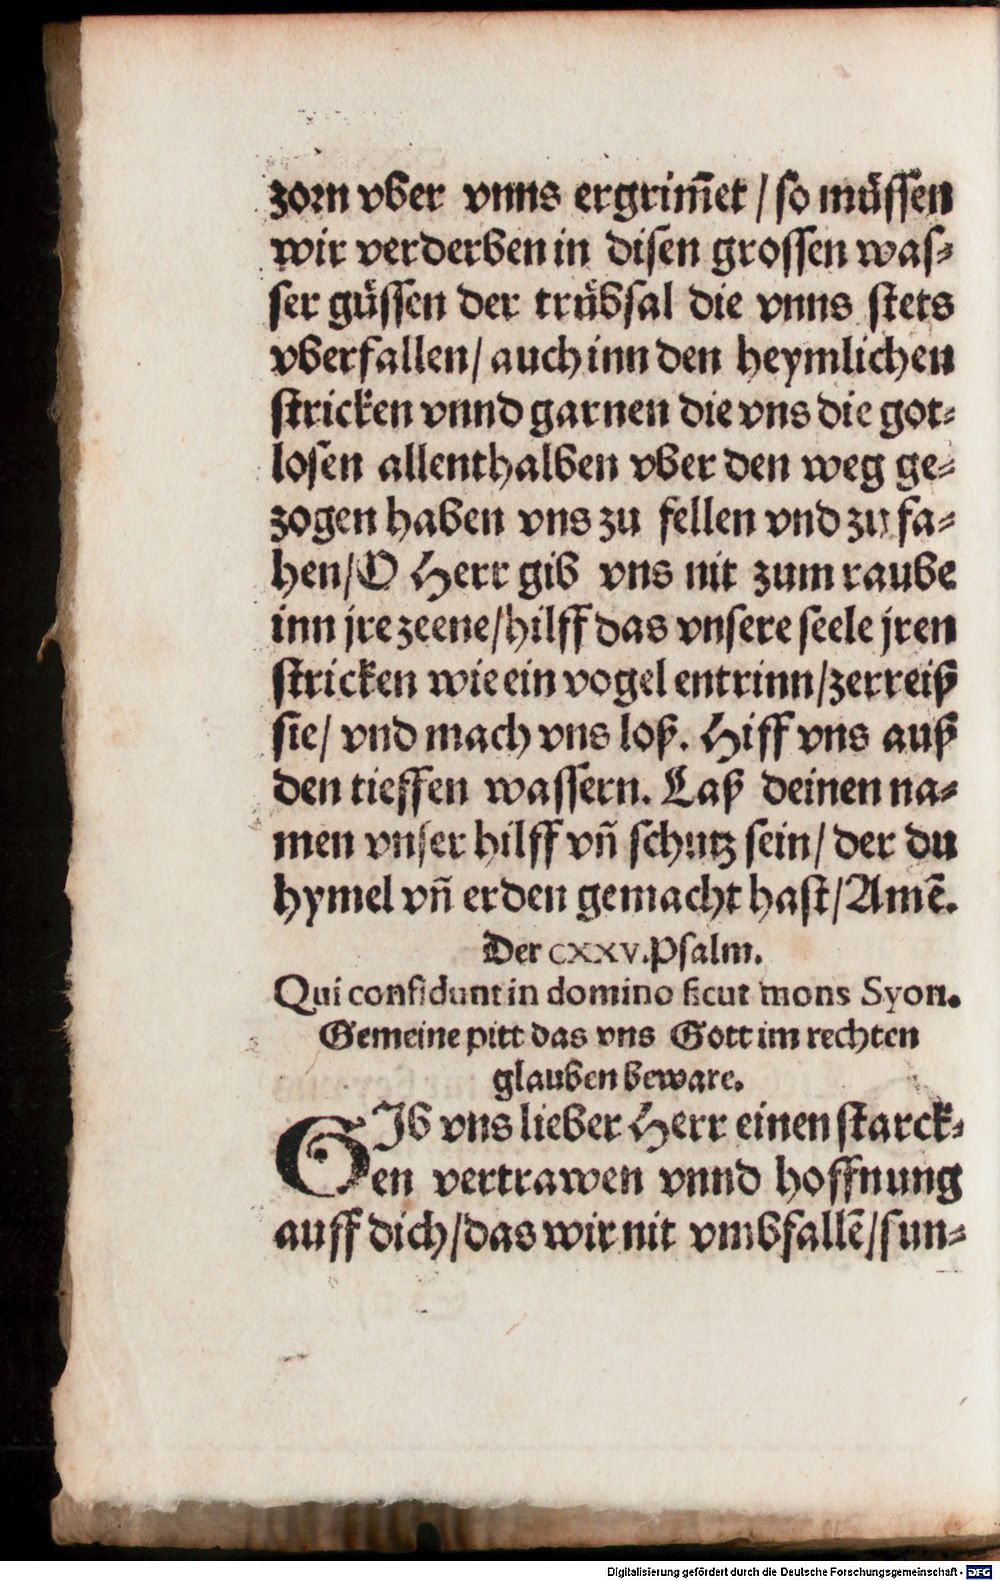 zorn vber vnns ergrim̃et / so müssen
wir verderben in disen grossen was⸗
ser güssen der trübsal die vnns stets
vberfallen / auch inn den heymlichen
stricken vnnd garnen die vns die got⸗
losen allenthalben vber den weg ge⸗
zogen haben vns zu fellen vnd zu fa⸗
hen / O Herr gib vns nit zum raube
inn jre zeene / hilff das vnsere seele jren
stricken wie ein vogel entrinn / zerreiß
sie / vnd mach vns loß. Hiff vns auß
den tieffen wassern. Laß deinen na⸗
men vnser hilff vñ schutz sein / der du
hymel vñ erden gemacht hast / Amẽ.
Der CXXV. Psalm.
Qui confidunt in domino sicut mons Syon.
Gemeine pitt das vns Gott im rechten
glauben beware.
GIb vns lieber Herr einen starck⸗
en vertrawen vnnd hoffnung
auff dich / das wir nit vmbfallẽ / sun⸗
Digitalisierung gefördert durch die Deutsche Forschungsgemeinschaft - DFG